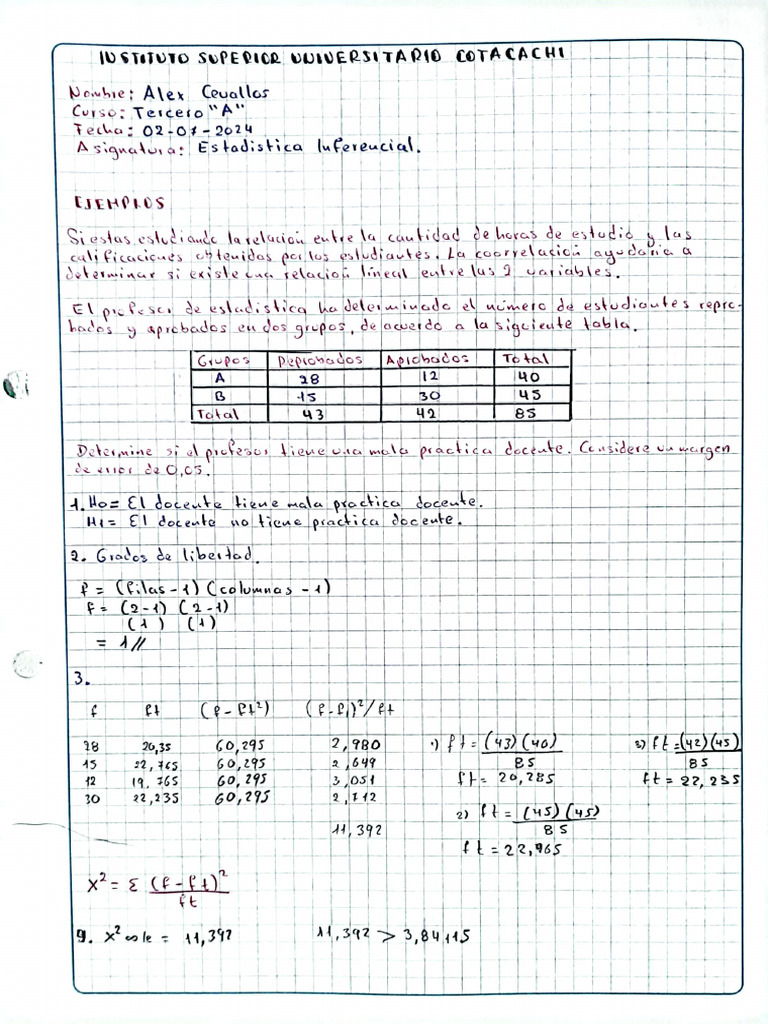 INSTITUTO SUPERIOR UNIVERSITARIO COTACACHI
Nombre: Alex Cevallos
Curso: Tercero "A"
Fecha: 02-07-2024
Asignatura: Estadistica Inferencial.
EJEMPLOS
Si estas estudiando la relacion entre la cantidad de horas de estudio y las
calificaciones obtenidas por los estudiantes. La coorrelacion ayudaria a
determinar si existe una relacion lineal entre las 2 variables.
El profesor de estadistica ha determinado el número de estudiantes repro-
bados y aprobados en dos grupos, de acuerdo a la siguiente tabla.
Grupos Reprobados Aprobados Total
A 28 12 40
B 15 30 45
Total 43 42 85
Determine si el profesor tiene una mala practica docente. Considere un margen
de error de 0,05.
1. Ho= El docente tiene mala practica docente.
H1= El docente no tiene practica docente.
2. Grados de libertad.
f = (filas-1) (columnas -1)
f = (2-1) (2-1)
(1) (1)
= 1//
3.
f ft (f-ft²) (f-f₁)²/ft
28 20,35 60,295 2,980
15 22,765 60,295 2,649
12 19,765 60,295 3,051
30 22,235 60,295 2,712
11,392
1) ft = (43)(40)
85
ft = 20,285
2) ft = (45)(45)
85
ft = 22,965
3) ft = (42)(45)
85
ft = 22,235
X² = Σ (f-ft)²
ft
9. X² = 11,392 11,392 > 3,84115